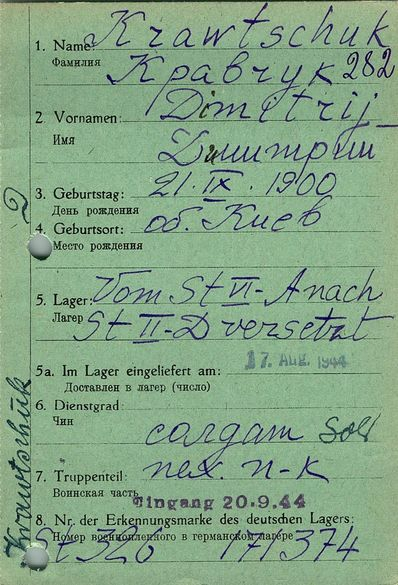 Krawtschuk
1. Name:
Фамилия
Кравчук 282
2. Vornamen: Dimitrij
Имя
Димитрий
3. Geburtstag: 21.IX.1900
День рождения
4. Geburtsort: об. Киев
Место рождения
2
5. Lager: Vom St VI-A nach
Лагер
St II-D versetzt
5a. Im Lager eingeliefert am: 17. Aug. 1944
Доставлен в лагер (число)
6. Dienstgrad:
Чин
солдат Sold
7. Truppenteil: пех. п-к
Воинская часть
Eingang 20.9.44
8. Nr. der Erkennungsmarke des deutschen Lagers:
Номер военнопленного в германском лагере
St 326 171374
Krawtschuk